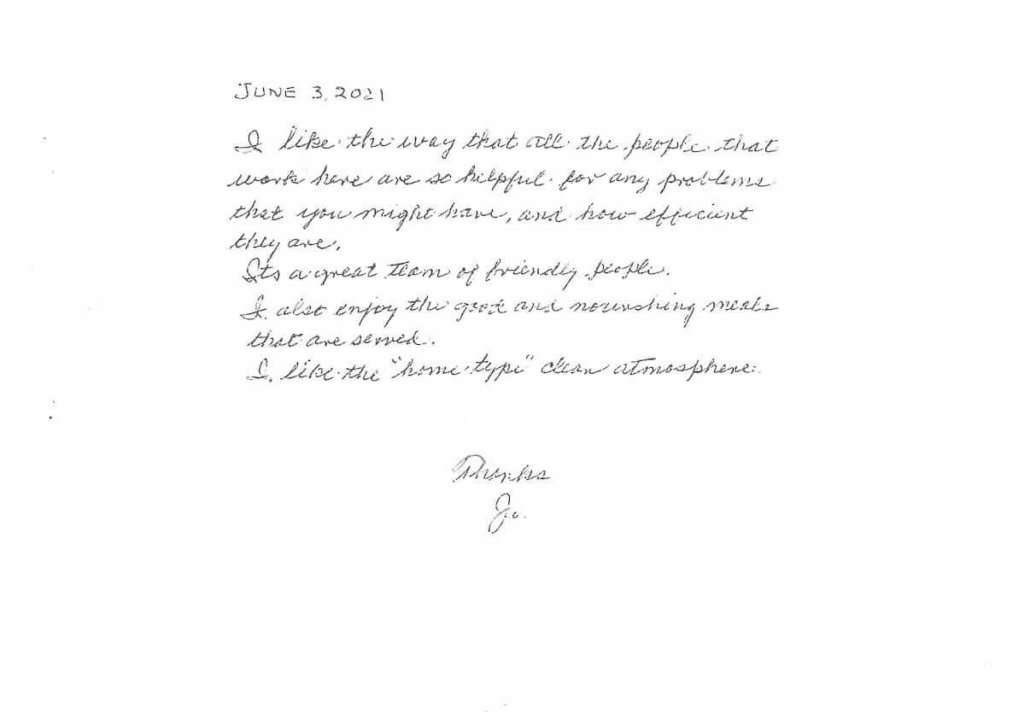 JUNE 3, 2021
I like the way that all the people that
work here are so helpful for any problems
that you might have, and how efficient
they are.
Its a great team of friendly people.
I also enjoy the good and nourishing meals
that are served.
I like the "home type" clean atmosphere.
Thanks
Jo.